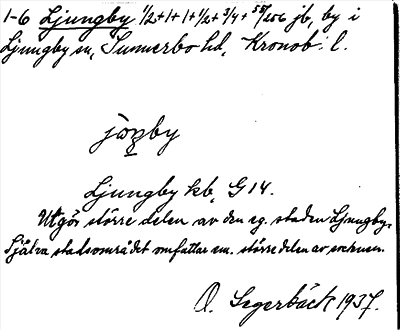 1-6 Ljungby 1/2+1+1+1/2+3/4+55/256 jb, by i
Ljungby sn, Sunnerbo hd, Kronob. l.
Ljungby kb, G 14.
Utgör större delen av den eg. staden Ljungby.
Själva stadsområdet omfattar em. större delen av socknen.
O. Segerbäck 1937.